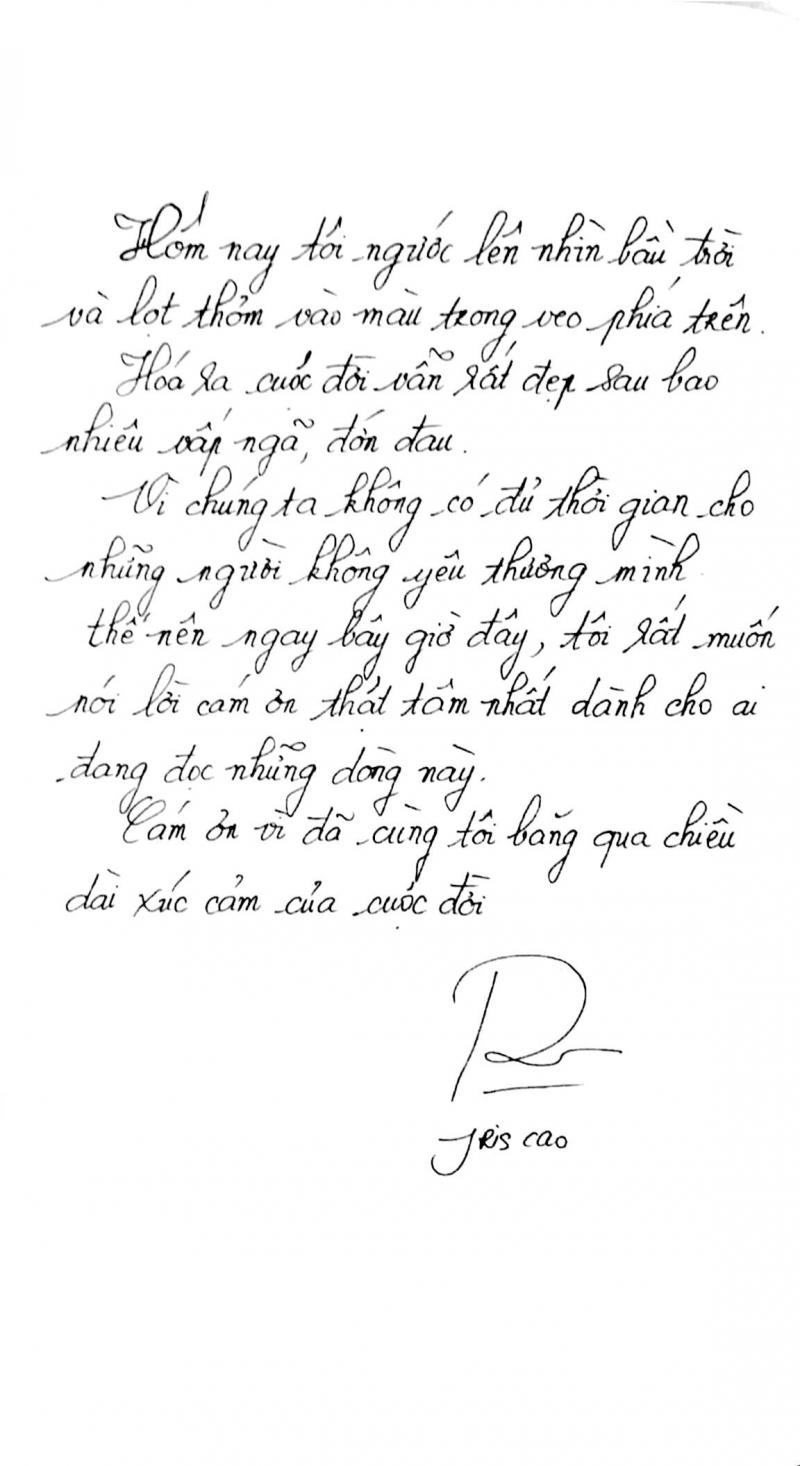 Hôm nay tôi ngước lên nhìn bầu trời
và lọt thỏm vào màu trong veo phía trên.
Hóa ra cuộc đời vẫn rất đẹp sau bao
nhiêu vấp ngã, đớn đau.
Vì chúng ta không có đủ thời gian cho
những người không yêu thương mình
thế nên ngay bây giờ đây, tôi rất muốn
nói lời cám ơn thật tâm nhất dành cho ai
đang đọc những dòng này.
Cám ơn vì đã cùng tôi băng qua chiều
dài xúc cảm của cuộc đời
Iris Cao